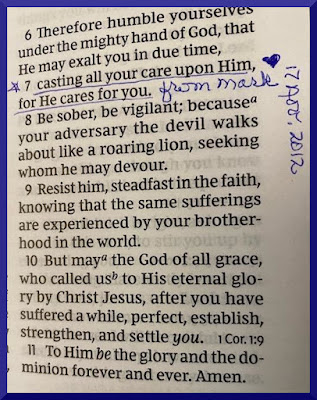 6 Therefore humble yourselves
under the mighty hand of God, that
He may exalt you in due time,
* 7 casting all your care upon Him, ♥
for He cares for you. from Mark
8 Be sober, be vigilant; becauseᵃ
your adversary the devil walks
about like a roaring lion, seeking
whom he may devour.
9 Resist him, steadfast in the faith,
knowing that the same sufferings
are experienced by your brother-
hood in the world.
10 But mayᵃ the God of all grace,
who called usᵇ to His eternal glo-
ry by Christ Jesus, after you have
suffered a while, perfect, establish,
strengthen, and settle you. 1 Cor. 1:9
11 To Him be the glory and the do-
minion forever and ever. Amen.
17 Apr. 2012